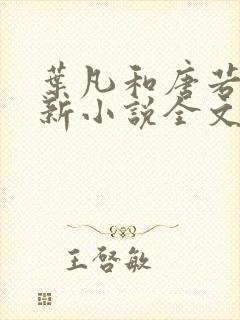 葉凡和唐若
新小說全文
王啓敏